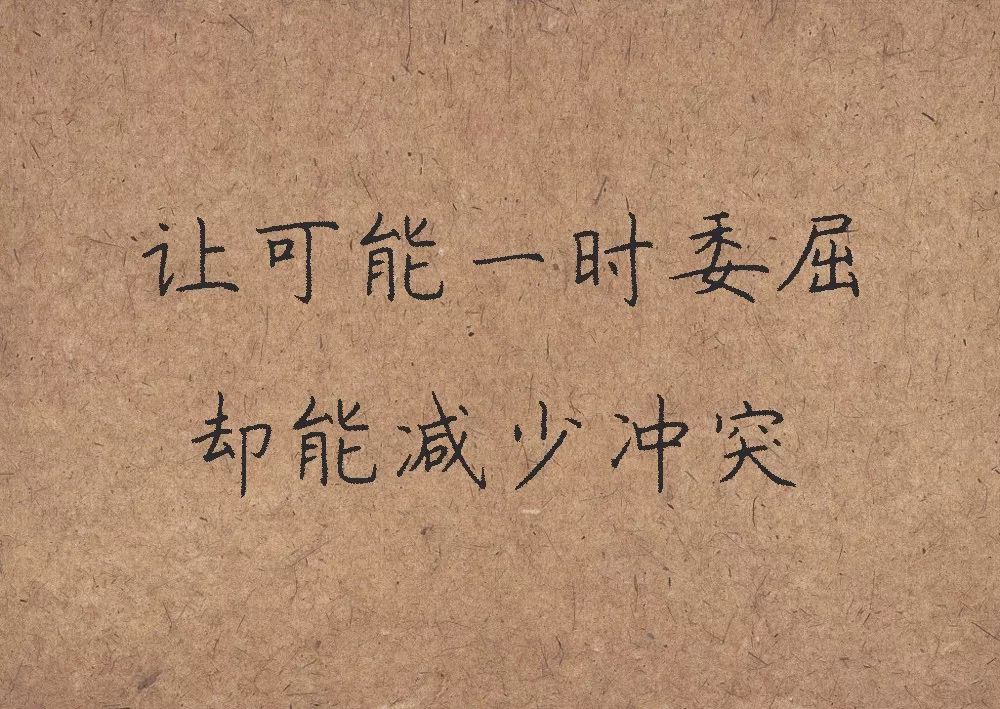 让可能一时委屈
却能减少冲突